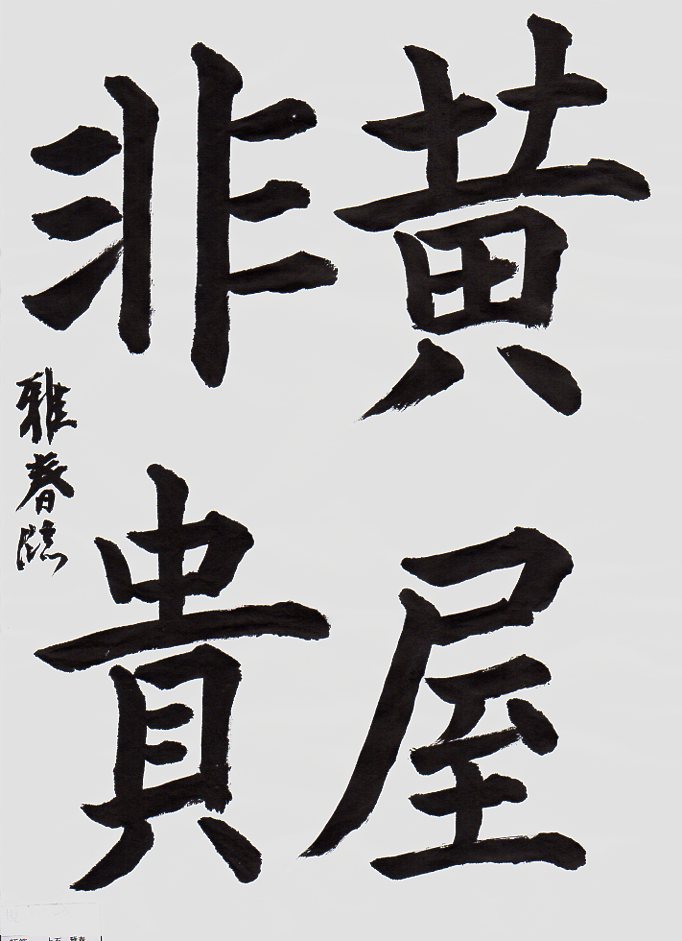 黄屋
非貴
雅春臨